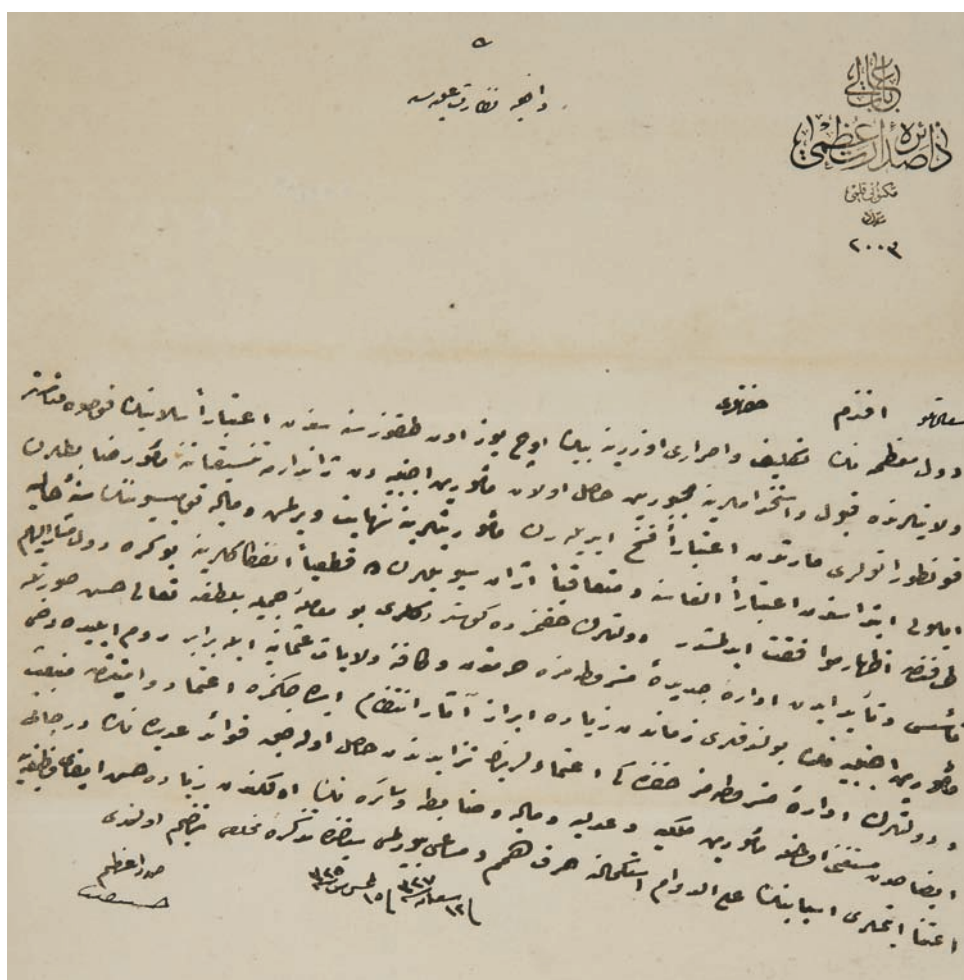 باب عالی
دائره صدارت عظمی
مکتوبی قلمی
عدد
٢٠٠٣
داخلیه نظارت علیه سنه
سعادتلو افندم حضرتلری
دول معظمه نك تكليف و اصراری اوزرينه بيك اوچ يوز اون طقوز سنه سندن اعتباراً سلانيك قوصوه مناستر
ولايتلرنده قبول و استخداملرينه مجبوريت حاصل اولان مأمورين اجنبيه دن ژاندارمه تنسيقاتنه مأمور ضابطلرك
قونطوراتولری مارتدن اعتباراً فسخ ايديله رك مأموريتلرينه نهايت ويرلمش و ماليه قوميسيوننك سنۀ حاليه
ايلولی ابتداسندن اعتباراً الغاسنه و متعاقباً اژان سيويللرك ده قطعياً انفكاكلرينه بو كره دول مشاراليهم
طرفندن اظهار موافقت ايدلمشدر دولتلرك حقمزده كوستردكلری بو معاملۀ جميله بلطفه تعالی حسن صورتله
تأسس و تأيد ايدن ادارۀ جديدۀ مشروطه مزه حرمتدن و كافۀ ولايات عثمانيه ايله برابر روم ايليده دخی
مأمورين اجنبيه نك بولندقلری زماندن زياده ابراز آثار انتظام ايده جكمزه اعتماد و امنيتدن منبعث
و دولتلرك ادارۀ مشروطه مز حقنده كی اعتمادلرينك تزايدندن حاصل اوله جق فوائد عديده نك درجاتی
ايضاحدن مستغنی اولمغله مأمورين ملكيه و عدليه و ماليه و ضابطه و سائره نك اولكندن زياده حسن ايفای وظيفه يه
اعتنا ايتملری اسبابنك علی الدوام استكمالنه صرف همم و مساعی بيورلمسی سياقنده تذكره مخلصی ترقيم اولندی
فی ١٢ شعبان سنه ٣٢٧ و فی ١٥ اغستوس سنه ٣٢٥
صدر اعظم